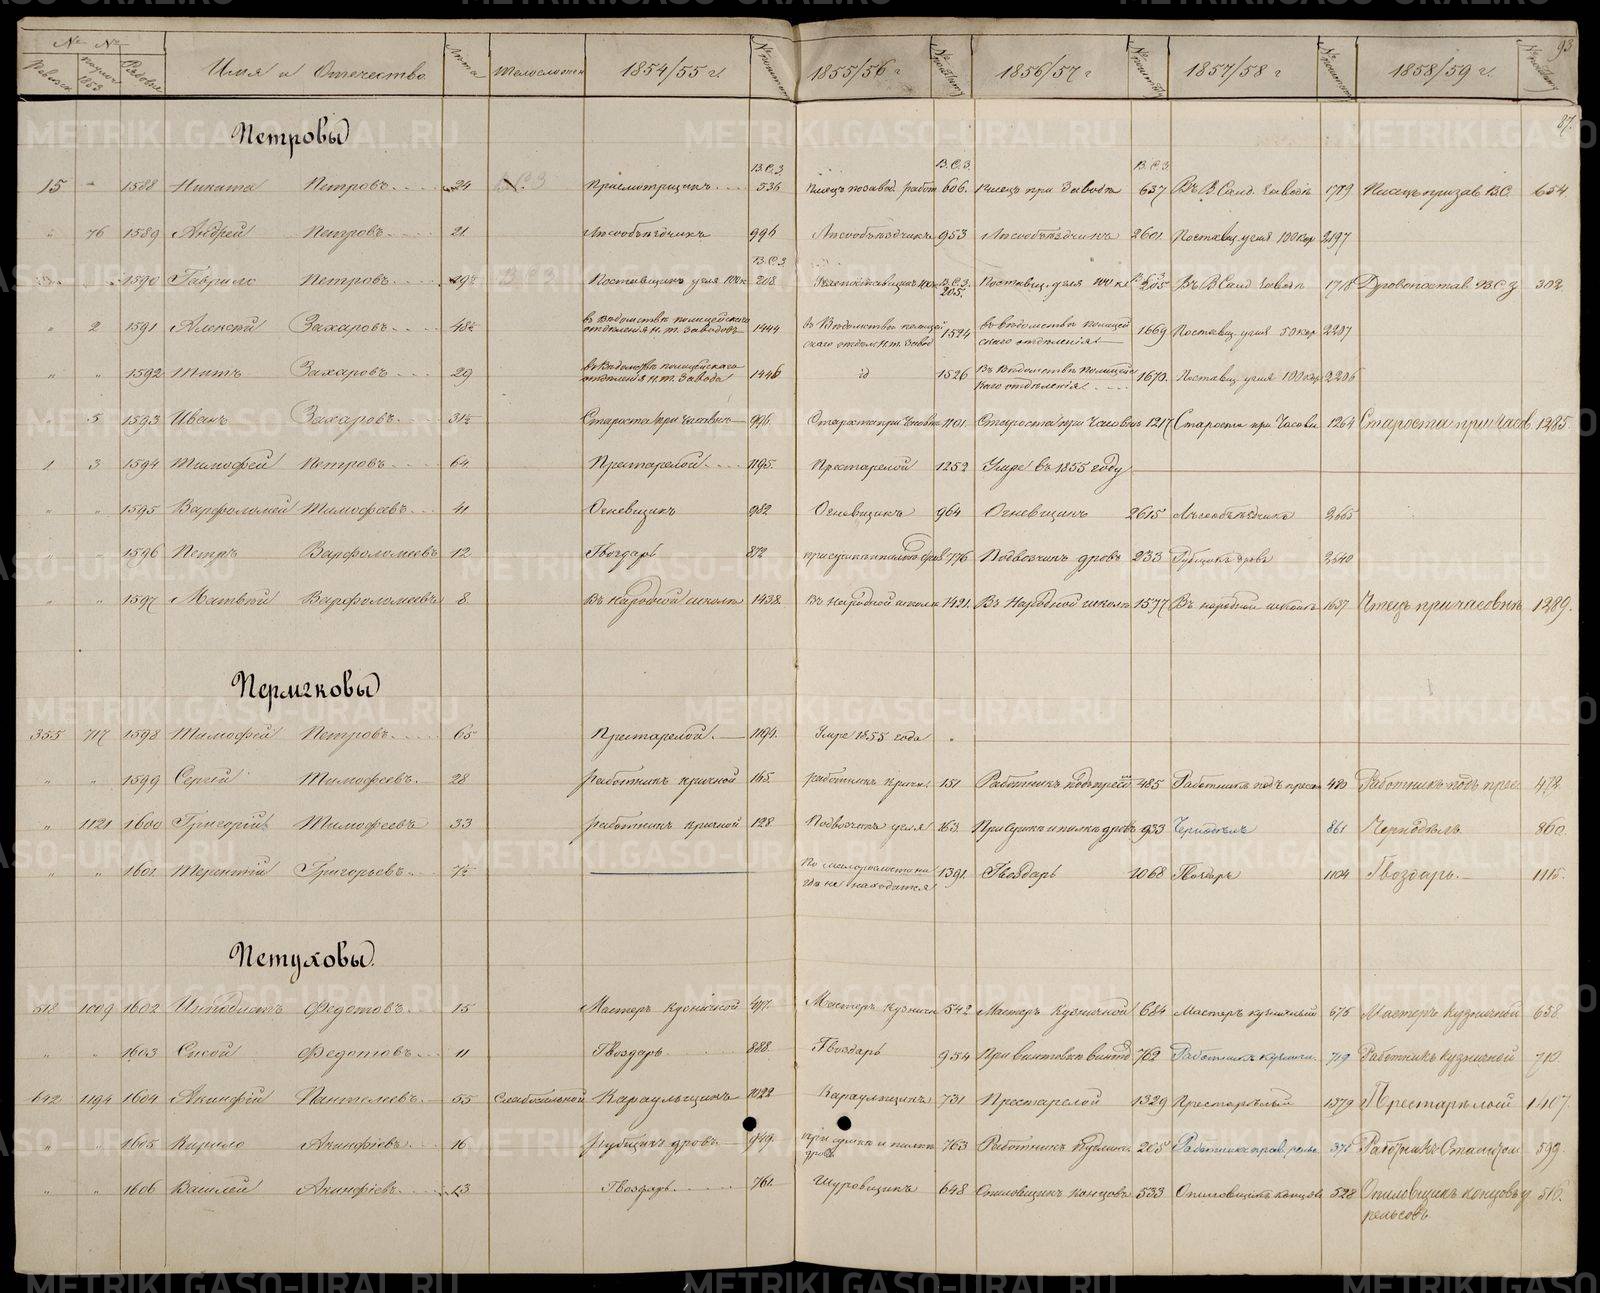 93
№ №
Ревизск 1853 Рядовые Имя и Отчество Лѣта Телослож 1854/55 г. 1855/56 г 1856/57 г 1857/58 г 1858/59 г.
87.
Петровы
В.С.З. В.С.З. В.С.З.
15 - 1588 Никита Петровъ 24 В.С.З Присмотрщикъ 536 606. Писецъ при Заводѣ 637 Въ В. Салд. Заводѣ 1719 654.
" 76 1589 Андрей Петровъ 21 Лѣсообъѣздчикъ 996 Лѣсообъѣздчикъ 953 Лѣсообъѣздчикъ 2601 Поставщ. угля 100 кор 2197
В.С.З.
1590 Гаврило Петровъ 29½ В.С.З Поставщикъ угля 100 к 208 Углепоставщикъ 100 к В.С.З. 205. Поставщ. угля 100 к 205 Въ В Салд Заводѣ 1718 Дровопостав. В.С.З 302.
" 2 1591 Алексѣй Захаровъ 48½ въ Вѣдомствѣ полицейскаго отдѣленія Н. Т. Заводовъ 1444 въ Вѣдомствѣ полицей скаго отдѣл Н.Т. Завод 1524 въ вѣдомствѣ полицей скаго отдѣленія 1669 Поставщ. угля 50 кор 2207
" " 1592 Титъ Захаровъ 29 въ Вѣдомствѣ полицейскаго отдѣленія Н.Т. Завода 1446 id 1526 Въ Вѣдомствѣ Полицей скаго отдѣленія 1670. Поставщ. угля 100 кор 2206
" 5 1593 Иванъ Захаровъ 31½ Староста при Часовнѣ 996. Староста при Часовнѣ 1101. Староста при Часовнѣ 1217 Староста при Часовн. 1264 Староста при Часов 1285.
1 3 1594 Тимофей Петровъ 64 Престарелой 1195. Престарелой 1252 Умре въ 1855 году
" " 1595 Варфоломей Тимофеевъ 41 Огневщикъ 982 Огневщикъ 964 Огневщикъ 2615 Лѣсообъѣздчикъ 2665
" " 1596 Петръ Варфоломеевъ 12 Гвоздарь 872 776 Подвозчикъ дровъ 233 Рубщикъ дровъ 2540
" " 1597 Матвѣй Варфоломеевъ 8 Въ народной школѣ 1438. Въ Народной школѣ 1421. Въ Народной школѣ 1577 Въ народной школѣ 1637 Чтецъ при часовнѣ 1289.
Пермяковы
355 717 1598 Тимофей Петровъ 65 Престарелой 1194. Умре 1855 года
" " 1599 Сергѣй Тимофеевъ 28 работникъ кричной 165. работникъ кричн. 151 Работникъ подъ прессо 485 Работникъ подъ прессо 480 Работникъ подъ прес. 472
" 1121 1600 Григорій Тимофеевъ 33 работникъ кричной 128 Подвозчикъ угля 163. При сушкѣ и пилкѣ дровъ 933 Чернодѣлъ 861 Чернодѣлъ 860.
" " 1601 Терентій Григорьевъ 7½ По малорослости ни гдѣ не находится 1391 Гвоздарь 1068 Гвоздарь 1104 Гвоздарь. 1115.
Петуховы.
518 1009 1602 Ипподистъ Федотовъ 15 Мастеръ Кузничной 497. Мастеръ Кузничн 542 Мастеръ Кузничной 684 Мастеръ кузничный 675 Мастеръ Кузничной 658.
" " 1603 Сысой Федотовъ 11 Гвоздарь 888. Гвоздарь 954 762 Работникъ кузничн. 719 Работникъ Кузничной 710.
642 1194 1604 Акинфій Пантелеевъ 55 Слабосильной Караульщикъ 1022 Караульщикъ 731 Престарелой 1329 Престарѣлый 1379 Престарѣлой 1407.
" " 1605 Кирило Акинфіевъ 16 рубщикъ дровъ 949. при сушкѣ и пилкѣ дровъ 763 Работникъ 205 Работникъ 371 Работникъ 599
" " 1606 Василей Акинфіевъ 13 Гвоздарь 761. Шуровщикъ 648 Опиловщикъ концовъ 533 Опиловщикъ концовъ 528 Опиловщикъ концовъ у рельсовъ 516.
METRIKI.GASO-URAL.RU